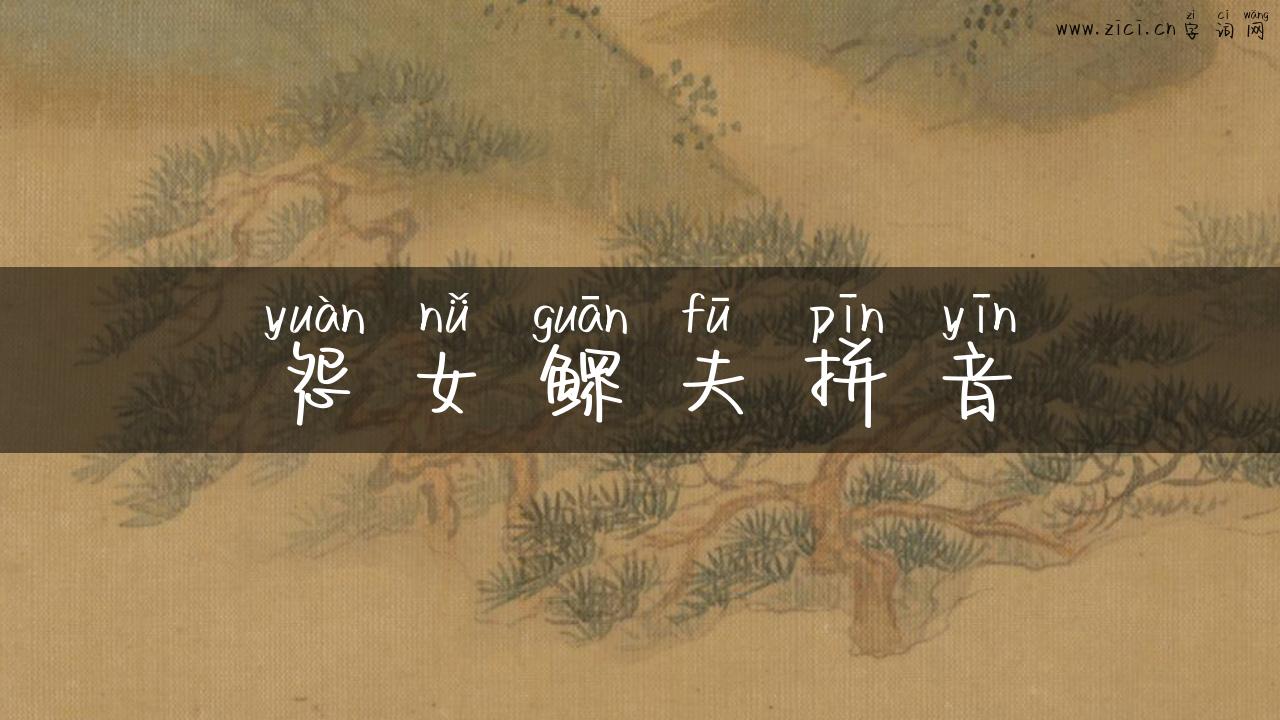 zì cí wǎng
www.zici.cn 字词网
yuàn nǚ guān fū pīn yīn
怨女鳏夫拼音